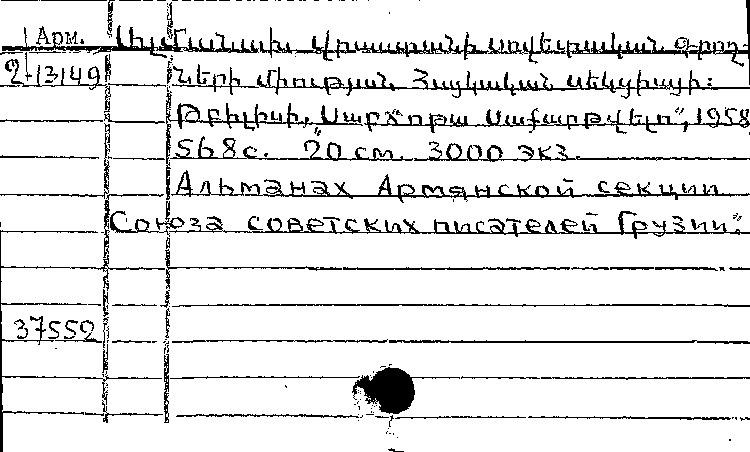 Арм. Ալմանախ. Վրաստանի սովետական գրող-
2-13149 ների միության Հայկական սեկցիայի:
Թբիլիսի, „Սաբճոթա Սաքարթվելո", 1958
568 с. 20 см. 3000 экз.
Альманах Армянской секции
Союза советских писателей Грузии".
37552